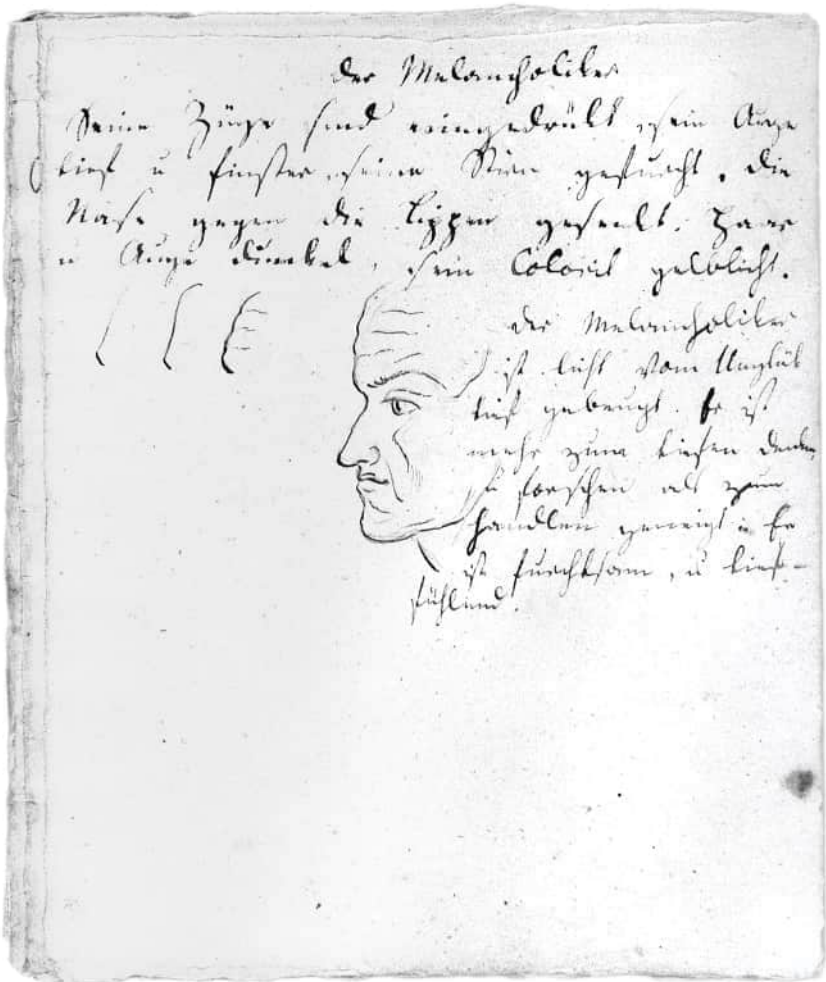 Der Melancholiker
Seine Züge sind eingedrükt, sein Auge
tief u finster, seine Stirn gefurcht, die
Nase gegen die Lippen gesenkt. Haar
u Auge dunkel, sein Colorit gelblicht.
Der Melancholiker
ist leicht vom Unglük
tief gebeugt. Er ist
mehr zum tiefen denken
u forschen als zum
handlen geneigt. Er
ist furchtsam, u tief-
fühlend.